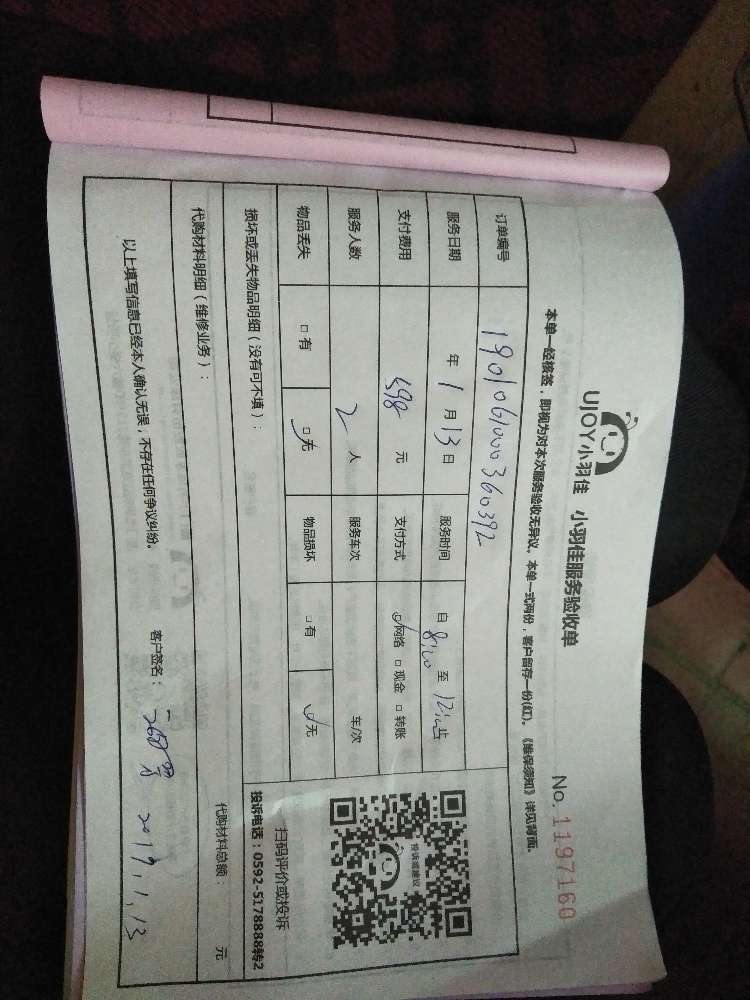 UJOY小羽佳 小羽佳服务验收单
No.1197160
本单一经核签，即视为对本次服务验收无异议。本单一式两份，客户留存一份(红)。《维保须知》详见背面。
订单编号 1901061000360392
服务日期 年 1 月 13 日 服务时间 自 8:00 至 12:00 止
支付费用 498 元 支付方式 网络 现金 转账
服务人数 2 人 服务车次 车/次
物品丢失 有 无 物品损坏 有 无
损坏或丢失物品明细（没有可不填）：
投诉或建议
扫码评价或投诉
投诉电话：0592-5178888转2
代购材料明细（维修业务）：
代购材料总额： 元
以上填写信息已经本人确认无误，不存在任何争议纠纷。 客户签名： 2019.1.13